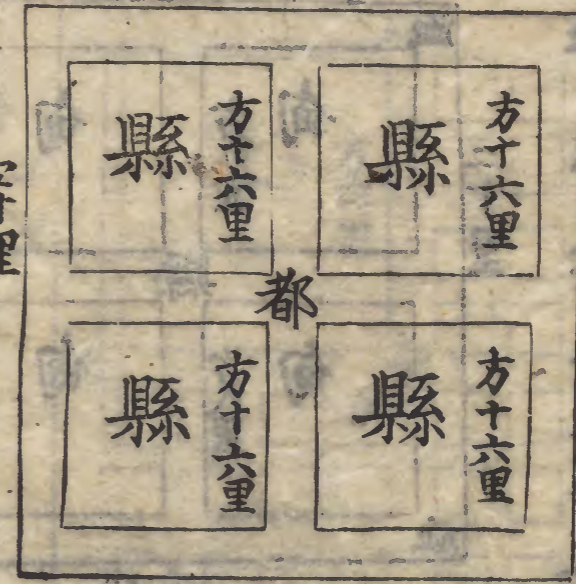 方十六里
縣
方十六里
縣
都
方十六里
縣
方十六里
縣